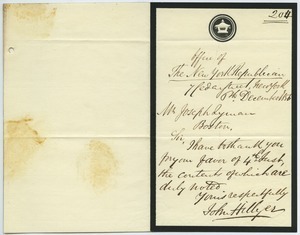 204
Office of
The New York Republican
Cedar Street, New York
6th December
Mr Joseph Lyman
Boston.
Sir,
I have to thank you
for your favor of 4th Inst,
the contents of which are
duly noted.
Yours respectfully
John Hillyer